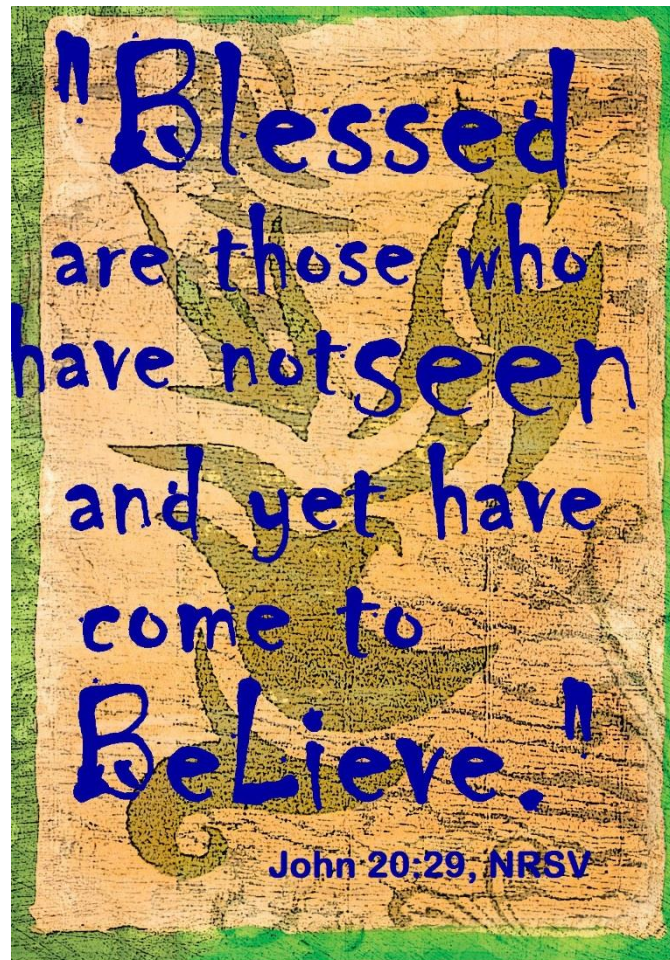 "Blessed
are those who
have not seen
and yet have
come to
BeLieve."
John 20:29, NRSV